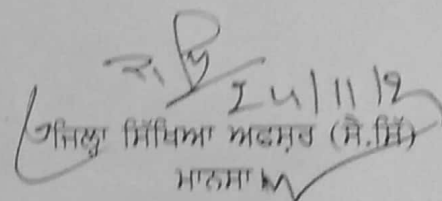 24/11/12
ਜਿਲ੍ਹਾ ਸਿੱਖਿਆ ਅਫਸਰ (ਸੈ.ਸਿੱ)
ਮਾਨਸਾ